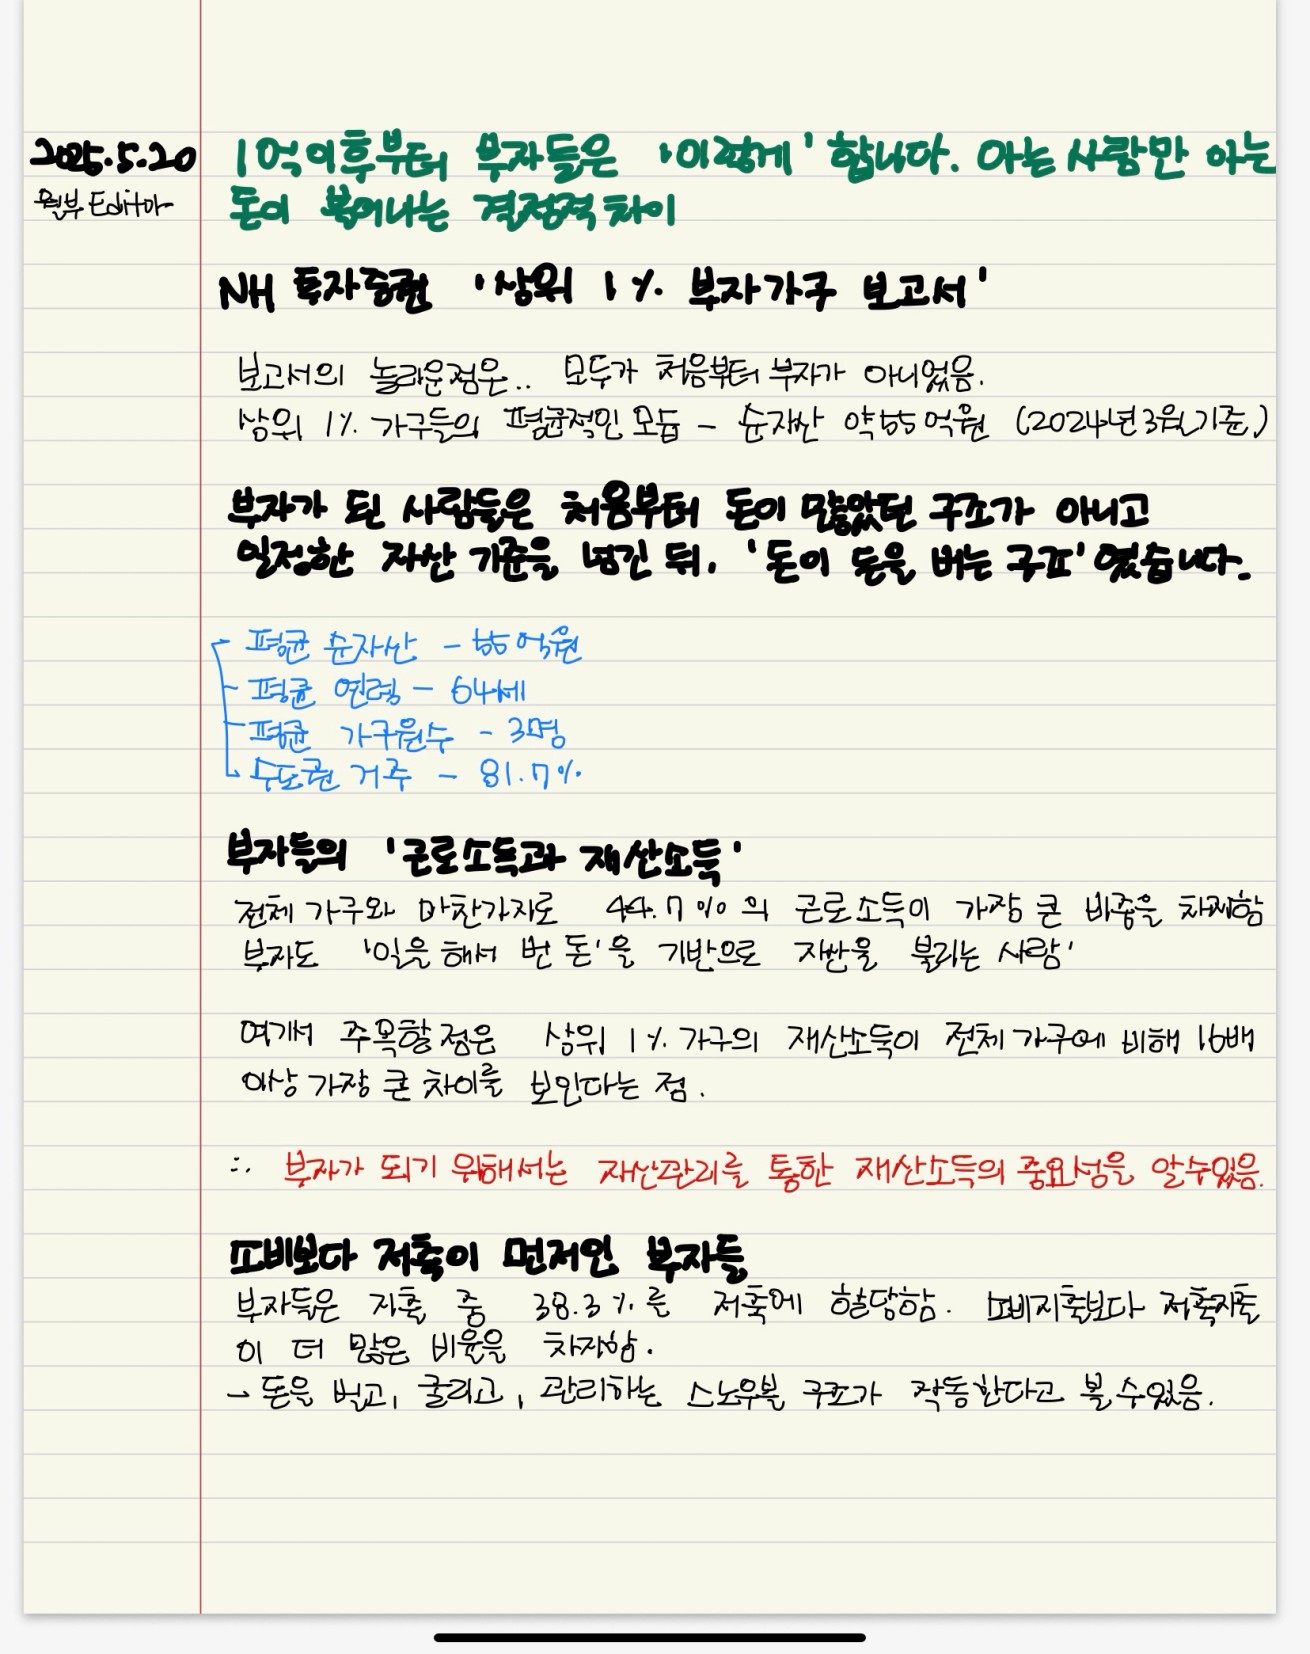 2025.5.20
월부 Editor
1억이후부터 부자들은 '이렇게' 합니다. 아는 사람만 아는
돈이 불어나는 결정적 차이
NH 투자증권 '상위 1% 부자가구 보고서'
보고서의 놀라운점은.. 모두가 처음부터 부자가 아니었음.
상위 1% 가구들의 평균적인 모습 - 순자산 약55억원 (2024년3월기준)
부자가 된 사람들은 처음부터 돈이 많았던 구조가 아니고
일정한 자산 기준을 넘긴 뒤, '돈이 돈을 버는 구조' 였습니다.
평균 순자산 - 55억원
평균 연령 - 64세
평균 가구원수 - 3명
수도권 거주 - 81.7%
부자들의 '근로소득과 재산소득'
전체 가구와 마찬가지로 44.7%의 근로소득이 가장 큰 비중을 차지함
부자도 '일을 해서 번 돈'을 기반으로 자산을 불리는 사람'
여기서 주목할 점은 상위 1% 가구의 재산소득이 전체 가구에 비해 16배
이상 가장 큰 차이를 보인다는 점.
∴ 부자가 되기 위해서는 자산관리를 통한 재산소득의 중요성을 알수있음.
소비보다 저축이 먼저인 부자들
부자들은 지출 중 38.3%를 저축에 할당함. 소비지출보다 저축지출
이 더 많은 비율을 차지함.
→ 돈을 벌고, 굴리고, 관리하는 스노우볼 구조가 작동한다고 볼 수있음.